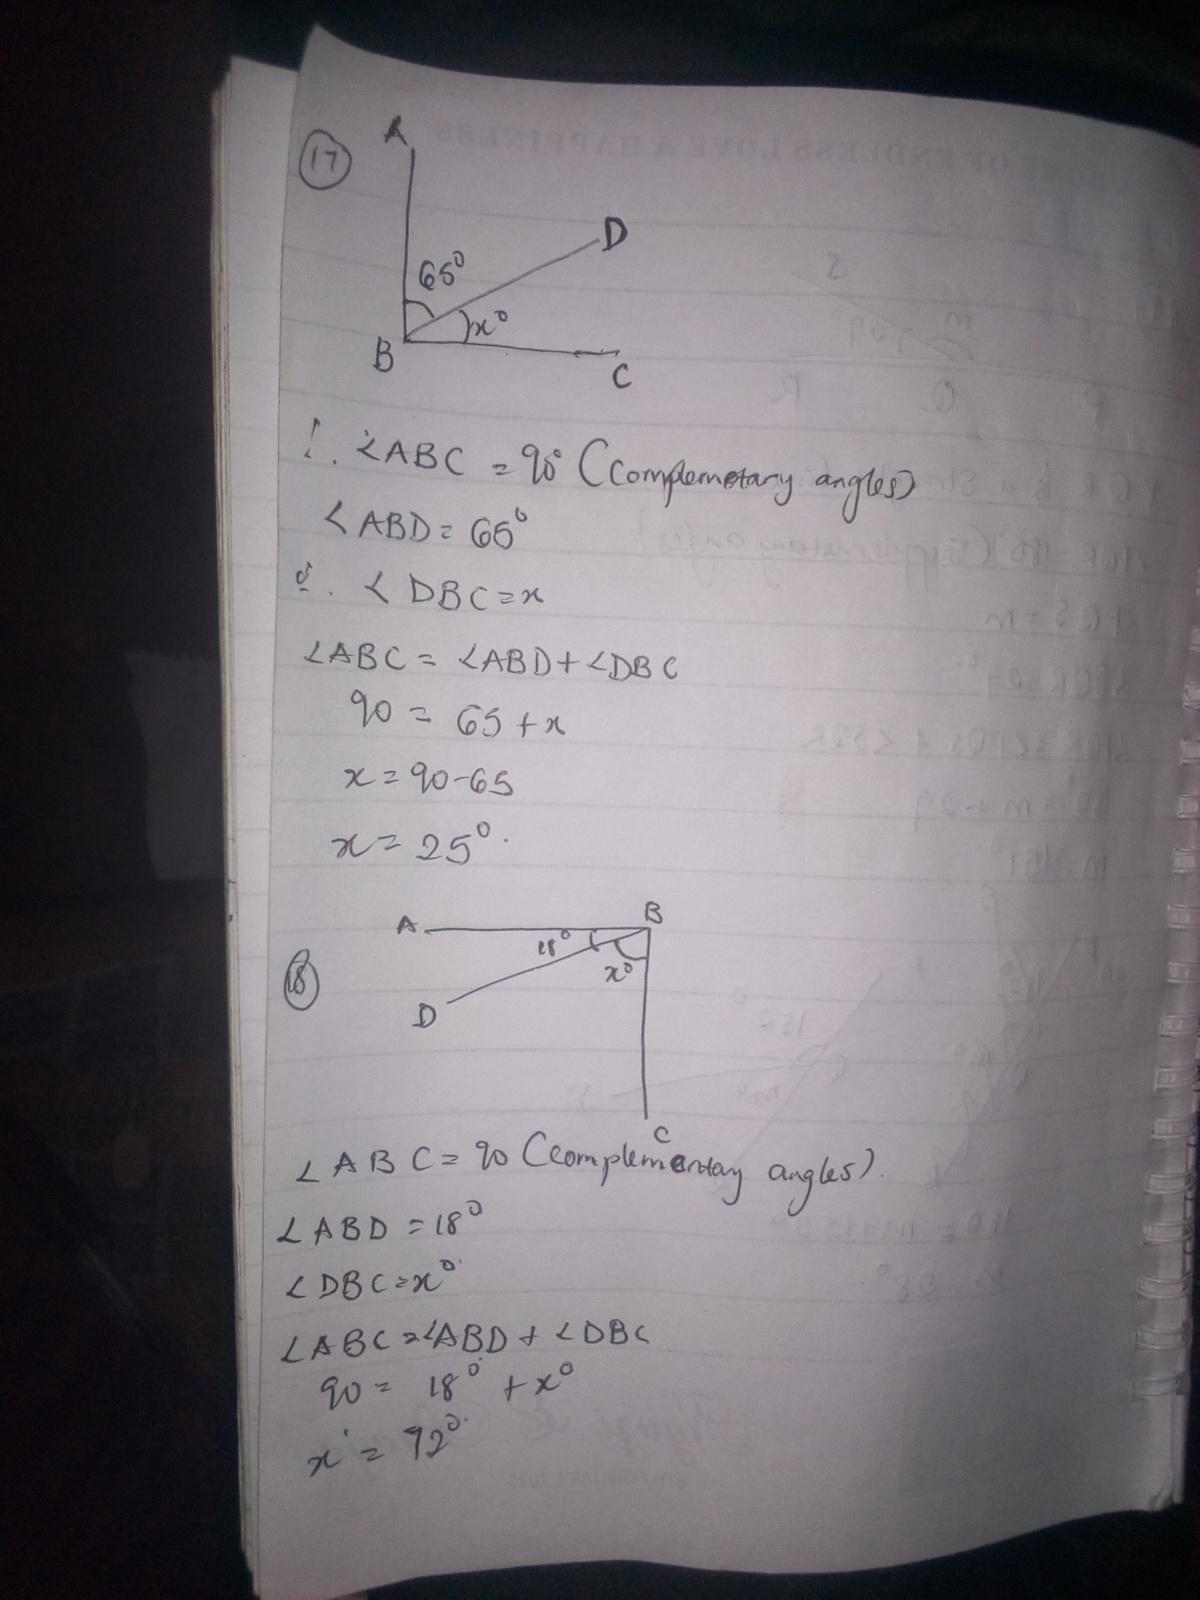 17
A
D
65°
x°
B
C
∴ ∠ABC = 90° (Complemetary angles)
∠ABD = 65°
∴ ∠DBC = x
∠ABC = ∠ABD + ∠DBC
90 = 65 + x
x = 90 - 65
x = 25°.
18
A B
18°
x°
D
C
∠ABC = 90 (complementay angles).
∠ABD = 18°
∠DBC = x°
∠ABC = ∠ABD + ∠DBC
90 = 18° + x°
x = 72°